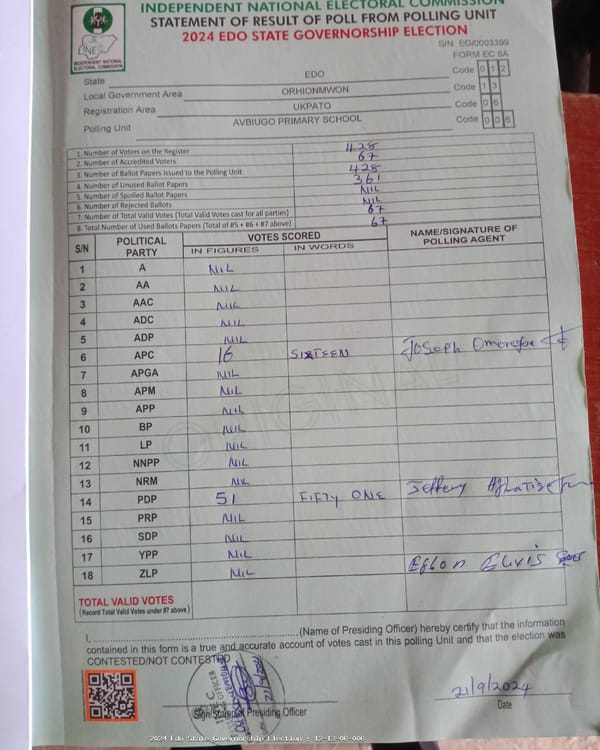 INDEPENDENT NATIONAL ELECTORAL COMMISSION
STATEMENT OF RESULT OF POLL FROM POLLING UNIT
2024 EDO STATE GOVERNORSHIP ELECTION
INDEPENDENT NATIONAL ELECTORAL COMMISSION
S/N: EG/0003399
FORM EC 8A
State EDO Code 0 1 2
Local Government Area ORHIONMWON Code 1 3
Registration Area UKPATO Code 0 6
Polling Unit AVBIUGO PRIMARY SCHOOL Code 0 0 6
1. Number of Voters on the Register 428
2. Number of Accredited Voters 67
3. Number of Ballot Papers Issued to the Polling Unit 428
4. Number of Unused Ballot Papers 361
5. Number of Spoiled Ballot Papers NIL
6. Number of Rejected Ballots NIL
7. Number of Total Valid Votes (Total Valid Votes cast for all parties) 67
8. Total Number of Used Ballots Papers (Total of #5 + #6 + #7 above) 67
S/N POLITICAL PARTY VOTES SCORED NAME/SIGNATURE OF POLLING AGENT
IN FIGURES IN WORDS
1 A NIL
2 AA NIL
3 AAC NIL
4 ADC NIL
5 ADP NIL
6 APC 16 SIXTEEN Joseph
7 APGA NIL
8 APM NIL
9 APP NIL
10 BP NIL
11 LP NIL
12 NNPP NIL
13 NRM NIL
14 PDP 51 FIFTY ONE Jeffery
15 PRP NIL
16 SDP NIL
17 YPP NIL
18 ZLP NIL Elvis
TOTAL VALID VOTES
(Record Total Valid Votes under #7 above)
ORIGINAL
I, (Name of Presiding Officer) hereby certify that the information
contained in this form is a true and accurate account of votes cast in this polling Unit and that the election was
CONTESTED/NOT CONTESTED
21/9/2024
Sign/Stamp of Presiding Officer
Date
2024 Edo State Governorship Election : 12-13-06-006